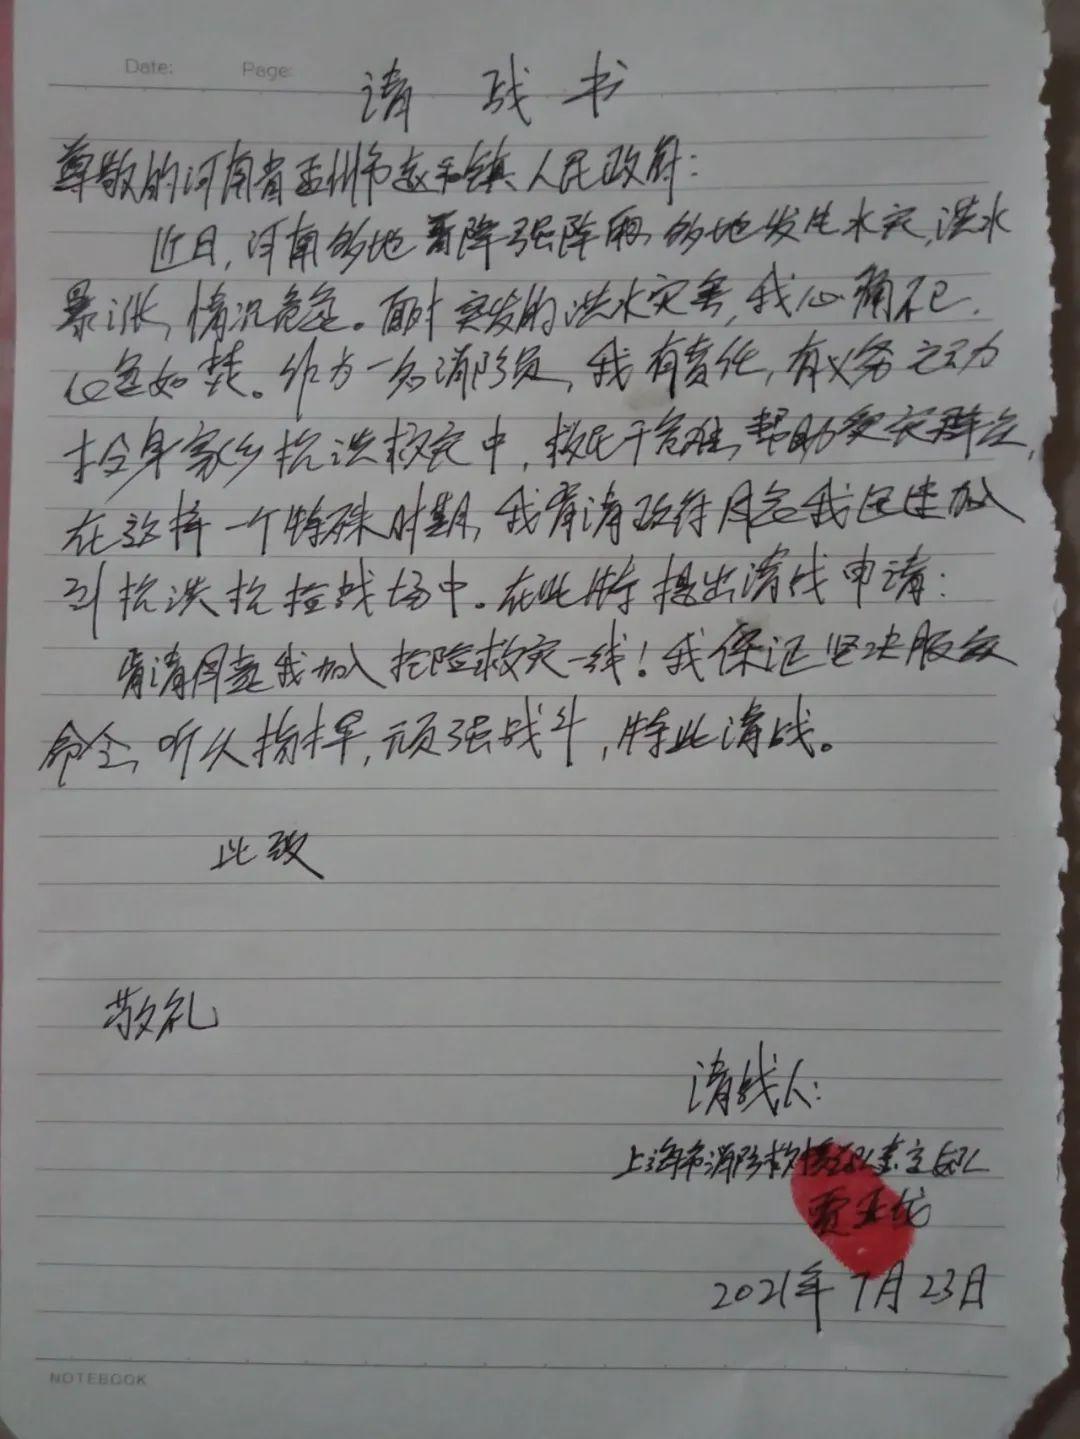 Date:
Page:
请战书
尊敬的河南省孟州市赵和镇人民政府:
近日,河南多地降强阵雨,多地发生水灾,洪水
暴涨,情况危急。面对突发的洪水灾害,我心痛不已,
心急如焚。作为一名消防员,我有责任,有义务
投身家乡抗洪救灾中,救民于危难,帮助受灾群众,
在这样一个特殊时期,我肯请政府同意我迅速加入
到抗洪抗险战场中。在此特提出请战申请:
肯请同意我加入抢险救灾一线!我保证坚决服从
命令,听从指挥,顽强战斗,特此请战。
此致
敬礼
请战人:
上海市消防救援总队支队
贾亚
2021年7月23日
NOTEBOOK